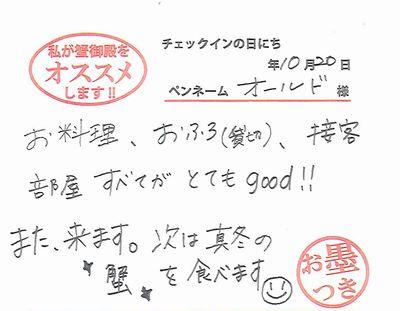 私が蟹御殿を
オススメ
します!!
チェックインの日にち
年10月20日
ペンネーム オールド 様
お料理、おふろ(貸切)、接客
部屋 すべてが とても good!!
また、来ます。次は真冬の
蟹 を食べます
お墨
つき